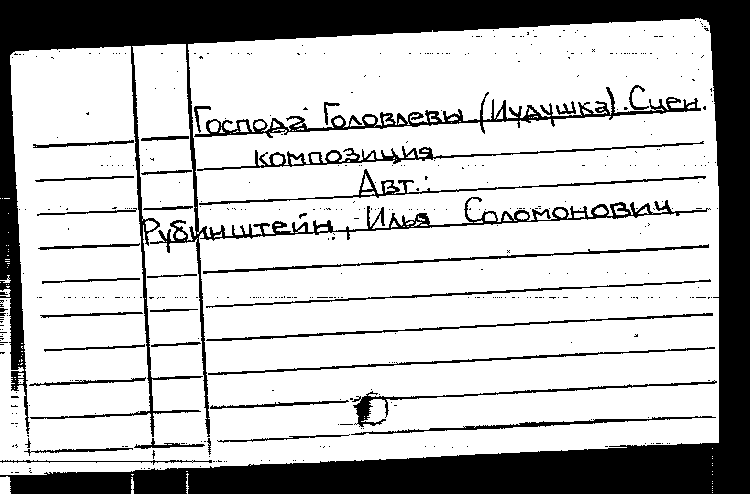 Господа Головлевы (Иудушка). Сцен.
композиция
Авт.:
Рубинштейн, Илья Соломонович.